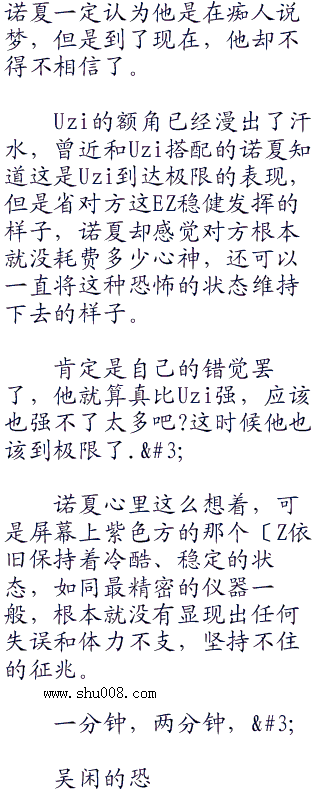 诺夏一定认为他是在痴人说
梦，但是到了现在，他却不
得不相信了。
Uzi的额角已经漫出了汗
水，曾近和Uzi搭配的诺夏知
道这是Uzi到达极限的表现，
但是省对方这EZ稳健发挥的
样子，诺夏却感觉对方根本
就没耗费多少心神，还可以
一直将这种恐怖的状态维持
下去的样子。
肯定是自己的错觉罢
了，他就算真比Uzi强，应该
也强不了太多吧?这时候他也
该到极限了.&#3;
诺夏心里这么想着，可
是屏幕上紫色方的那个〔Z依
旧保持着冷酷、稳定的状
态，如同最精密的仪器一
般，根本就没有显现出任何
失误和体力不支，坚持不住
的征兆。
www.shu008.com
一分钟，两分钟，&#3;
吴闲的恐